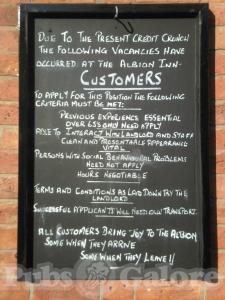 DUE TO THE PRESENT CREDIT CRUNCH
THE FOLLOWING VACANCIES HAVE
OCCURRED AT THE ALBION INN-
CUSTOMERS
TO APPLY FOR THIS POSITION THE FOLLOWING
CRITERIA MUST BE MET:
PREVIOUS EXPERIENCE ESSENTIAL
OVER 65s ONLY NEED APPLY
ABLE TO INTERACT WITH LANDLORD AND STAFF
CLEAN AND PRESENTABLE APPEARANCE
VITAL
PERSONS WITH SOCIAL BEHAVIOURAL PROBLEMS
NEED NOT APPLY
HOURS NEGOTIABLE
TERMS AND CONDITIONS AS LAID DOWN BY THE
LANDLORD
SUCCESSFUL APPLICANTS WILL NEED OWN TRANSPORT
ALL CUSTOMERS BRING JOY TO THE ALBION
SOME WHEN THEY ARRIVE
SOME WHEN THEY LEAVE!!
Pubs Galore